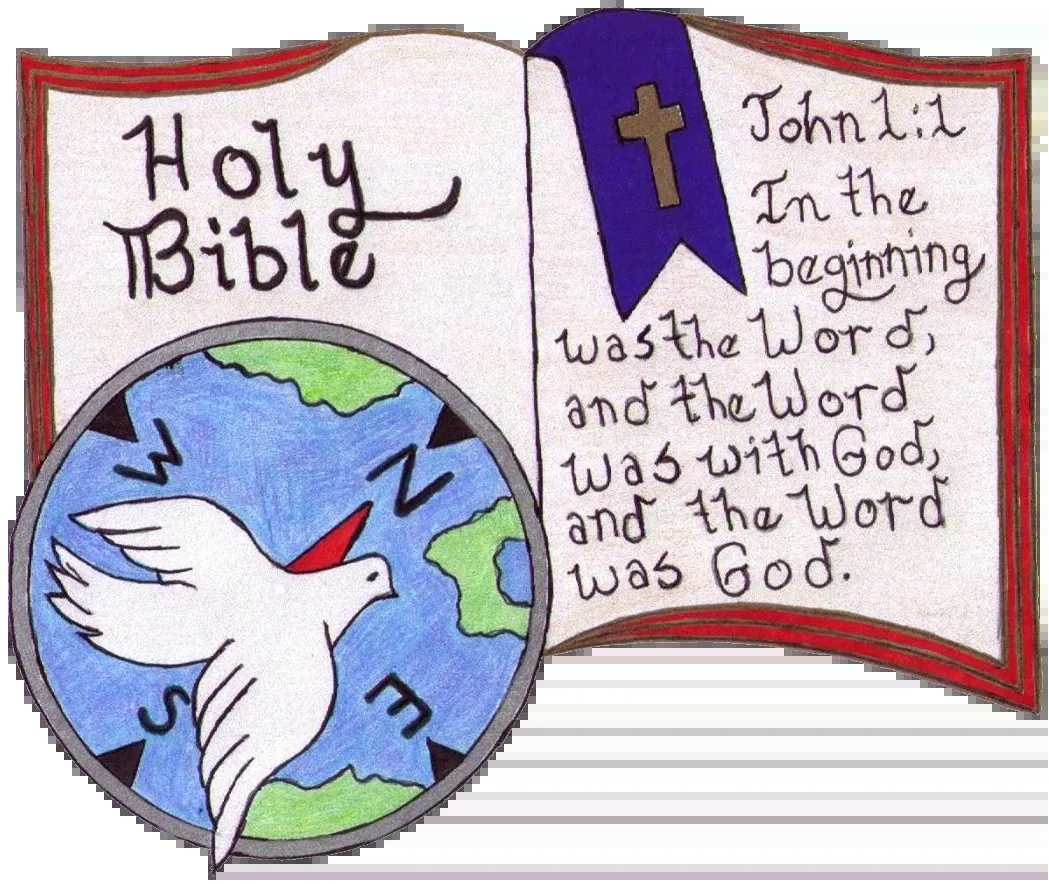 Holy
Bible
W
N
S
E
John 1:1
In the
beginning
was the Word,
and the Word
was with God,
and the Word
was God.